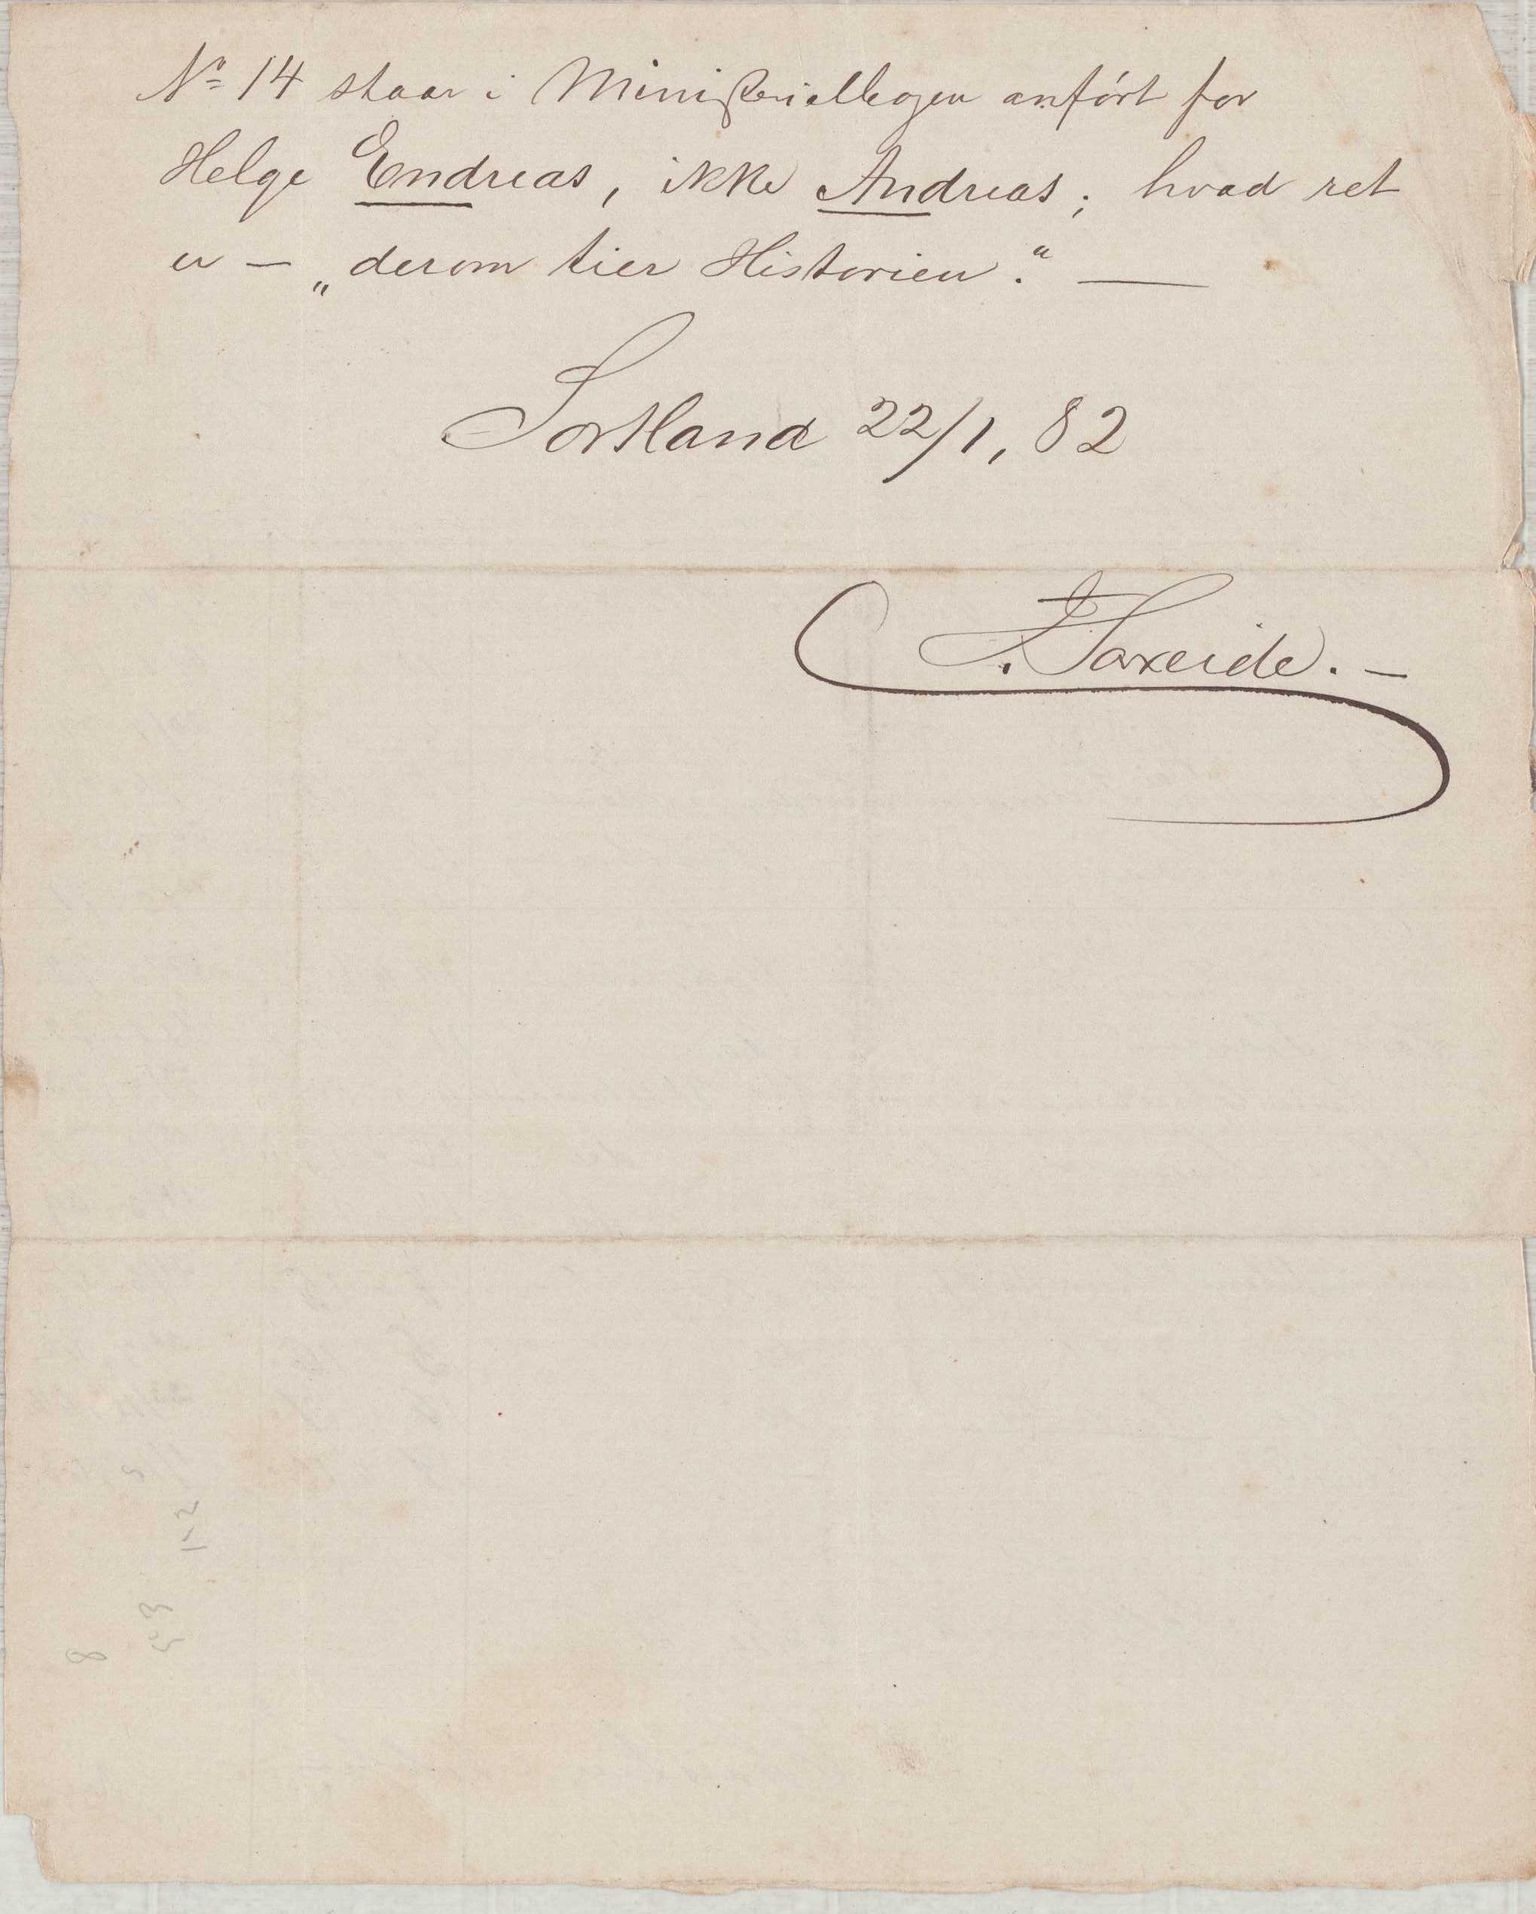 No 14 staar i Ministerialbogen anført for
Helge Endreas, ikke Andreas; hvad ret
er — „derom tier Historien.“ —
Sortland 22/1, 82
Saxeide. —
1-2
8